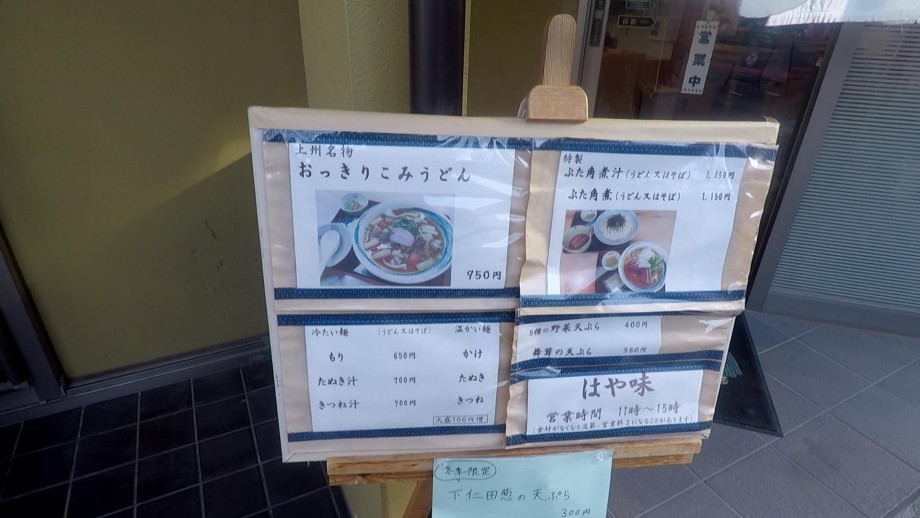 営業中
上州名物
おっきりこみうどん
950円
特製
ぶた角煮汁(うどん又はそば) 1,150円
ぶた角煮(うどん又はそば) 1,150円
冷たい麺 (うどん又はそば) 温かい麺
もり 650円 かけ
たぬき汁 700円 たぬき
きつね汁 700円 きつね
大盛100円増
5種の野菜天ぷら 400円
舞茸の天ぷら 350円
はや味
営業時間 11時〜15時
(食材がなくなり次第、営業終了になることがあります)
冬季限定
下仁田葱の天ぷら
300円